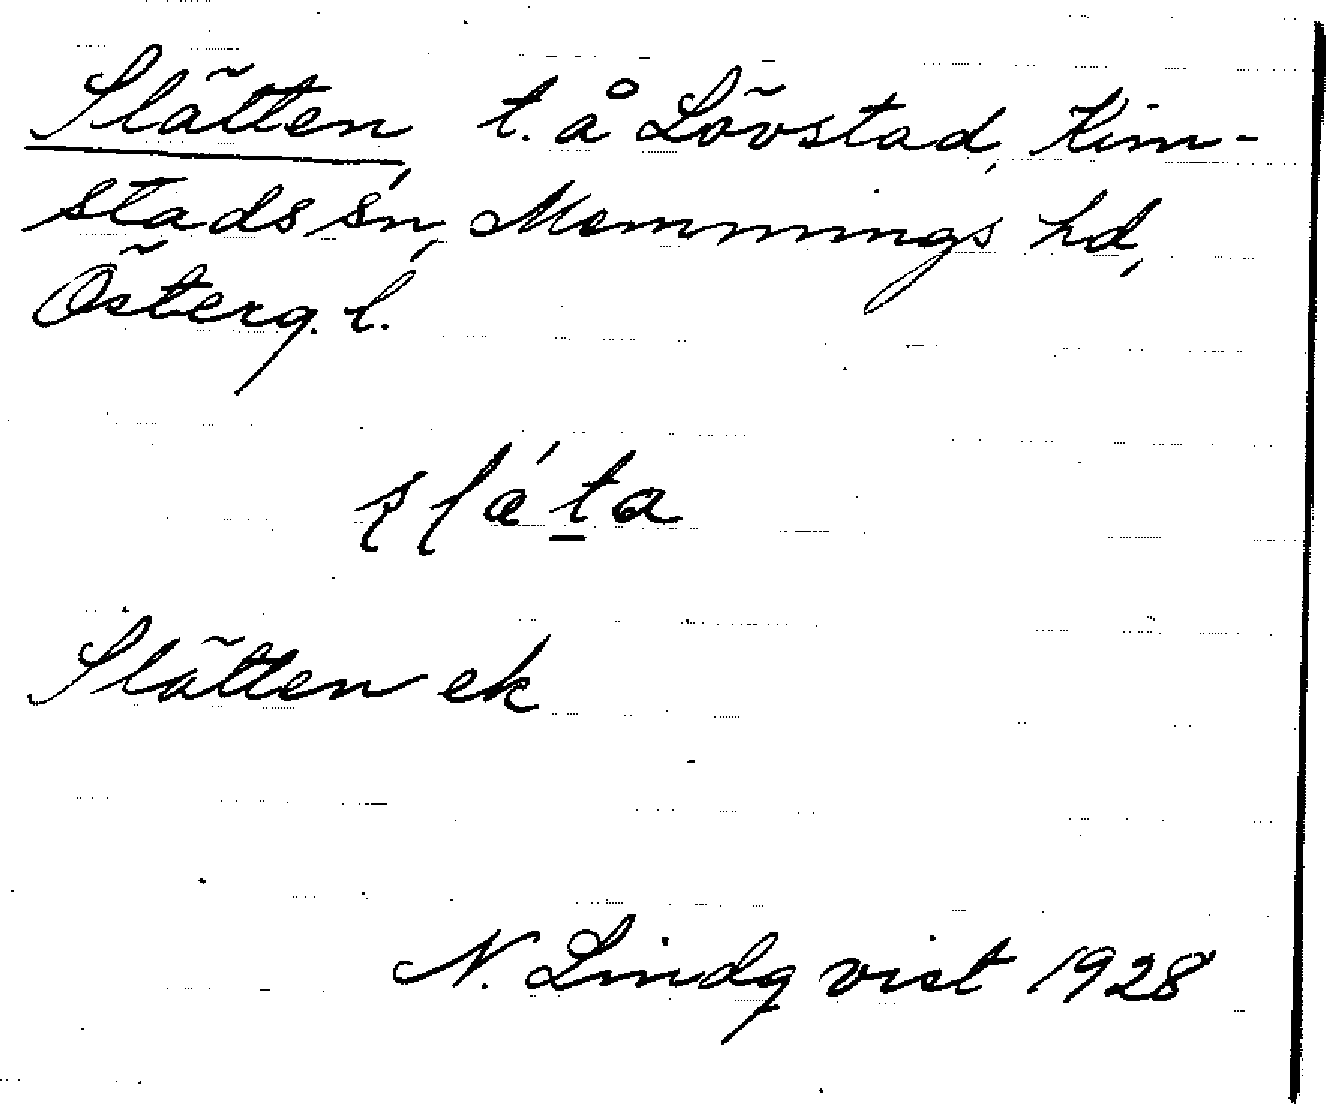 Slätten, t. å Lövstad, Kim-
stads sn, Memmings hd,
Österg. l.
slǽt̲a
Slätten ek
N. Lindqvist 1928